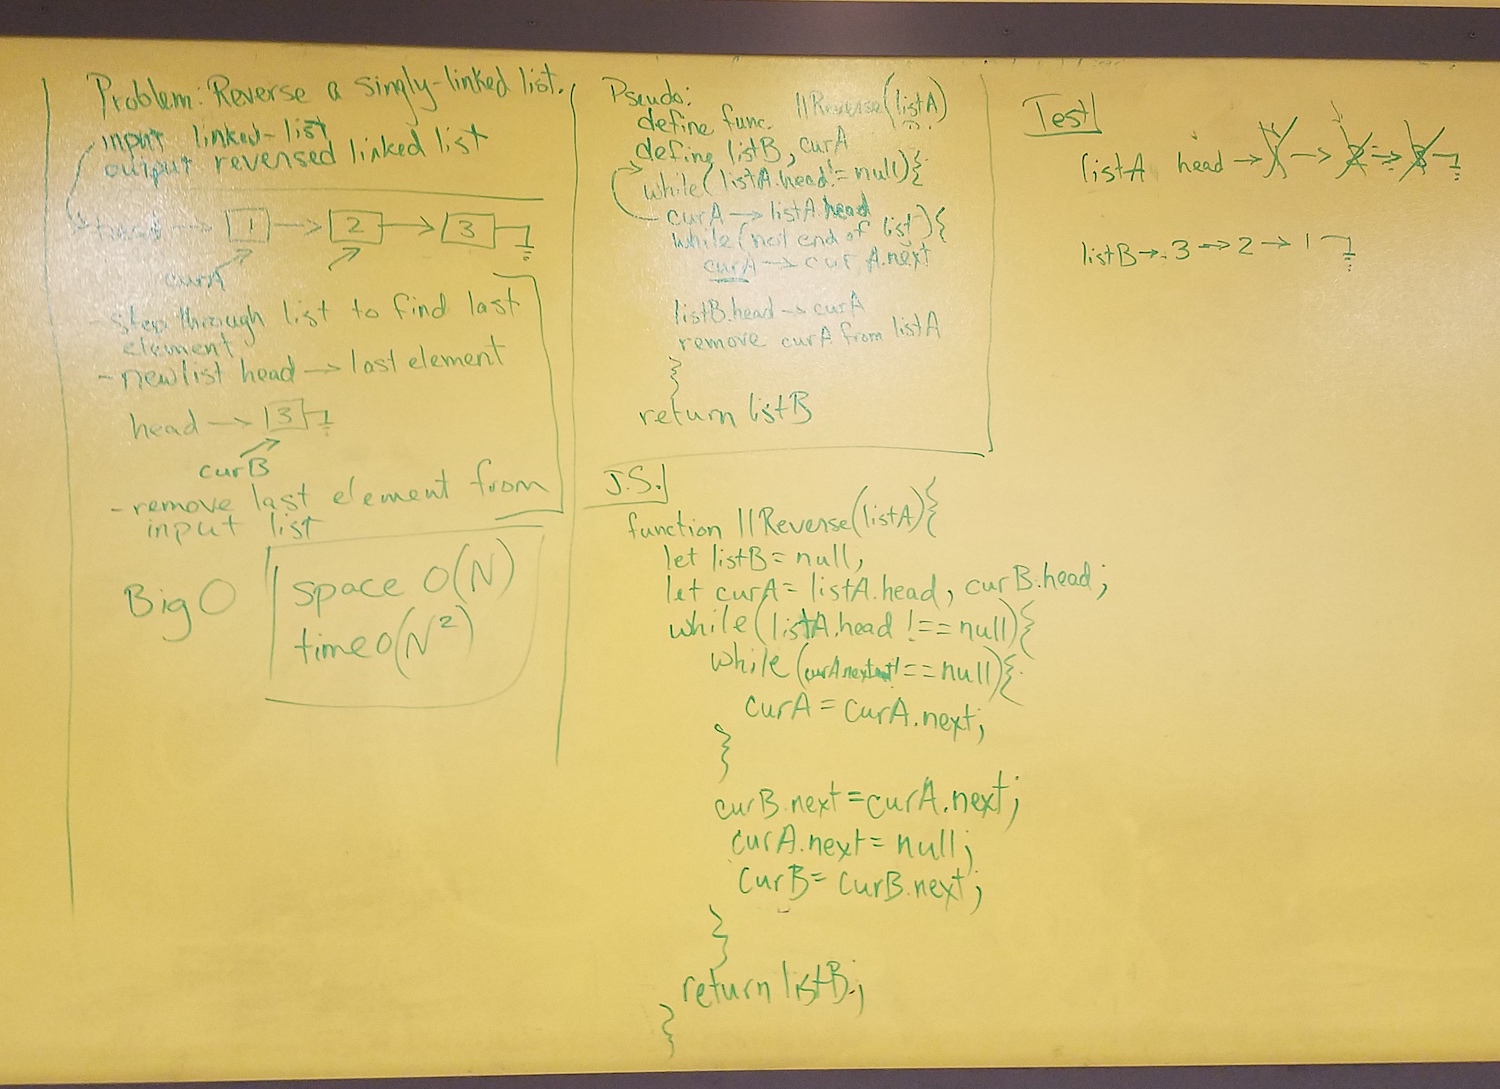 Problem: Reverse a singly-linked list.
input linked-list
output reversed linked list
head → 1 → 2 → 3
curA
- step through list to find last
element
- new list head → last element
head → 3
curB
- remove last element from
input list
Big O
space O(N)
time O(N²)
Pseudo:
define func. llReverse(listA)
define listB, curA
while(listA.head != null){
curA → listA.head
while(not end of list){
curA → curA.next
listB.head → curA
remove curA from listA
}
return listB
J.S.
function llReverse(listA){
let listB = null,
let curA = listA.head, curB.head;
while(listA.head !== null){
while(curA.next !== null){
curA = curA.next;
}
curB.next = curA.next;
curA.next = null;
curB = curB.next;
}
return listB;
}
Test
listA head → 1 → 2 → 3
listB → 3 → 2 → 1